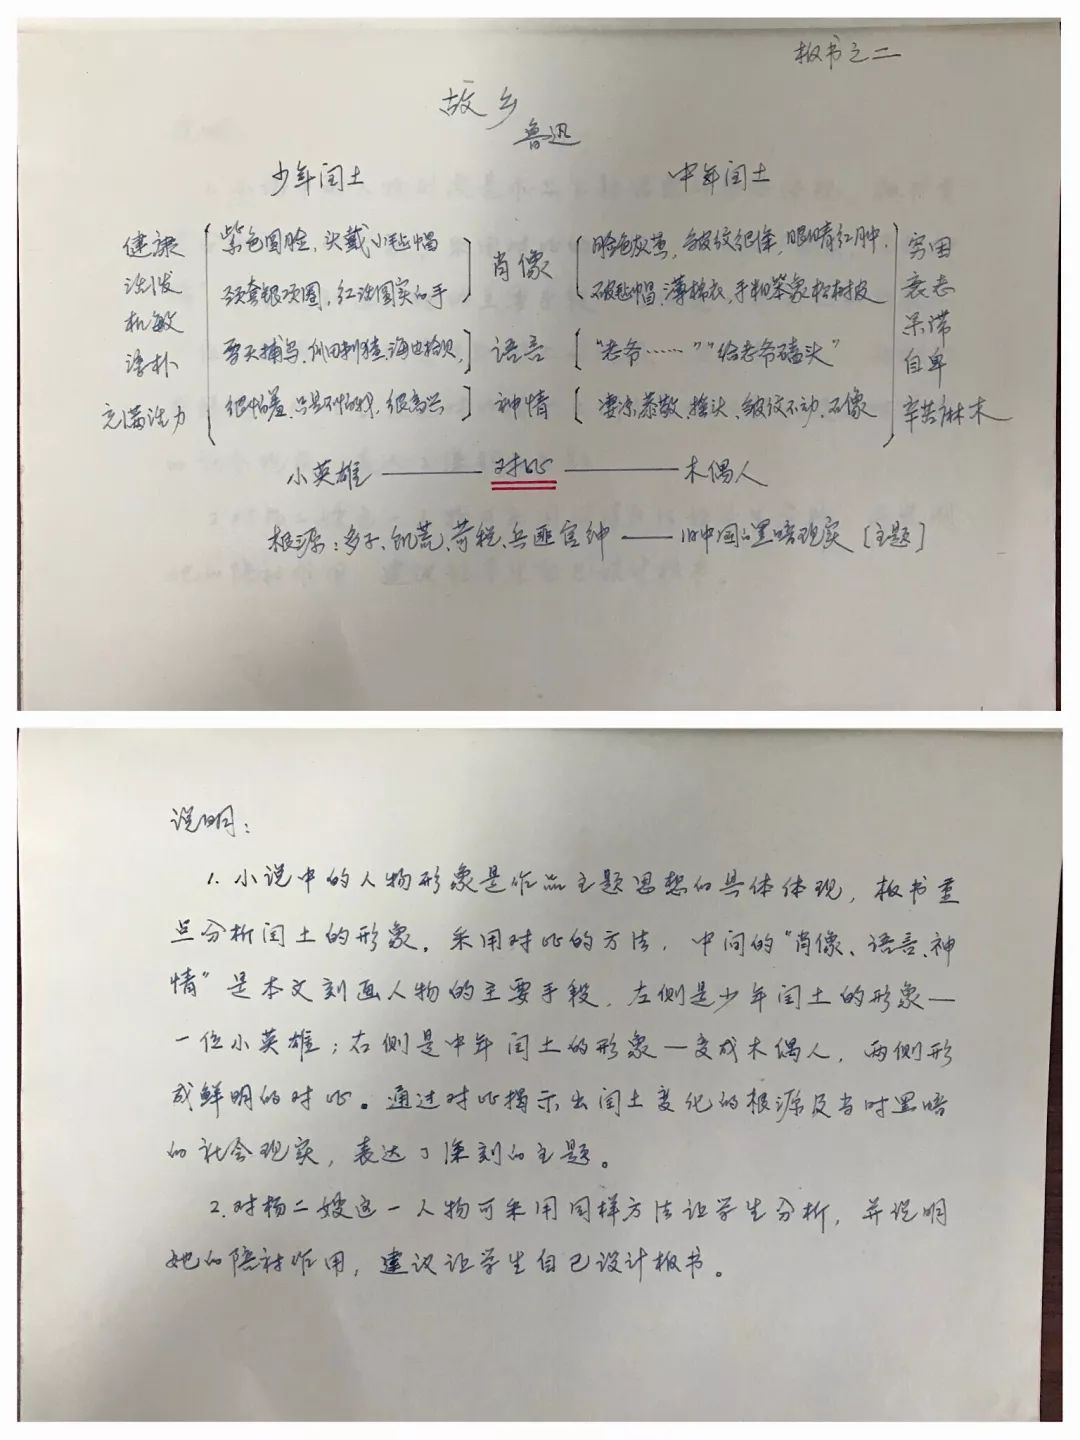 板书之二
故乡
鲁迅
少年闰土 中年闰土
健康 紫色圆脸,头戴小毡帽 肖像 脸色灰黄,皱纹很深,眼睛红肿. 穷困
活泼 颈套银项圈,红活圆实的手 破毡帽、薄棉衣,手粗笨象松树皮 衰老
机敏 呆滞
淳朴 雪天捕鸟、瓜田刺猹,海边捡贝, 语言 “老爷……”“给老爷磕头” 自卑
充满活力 很怕羞、只是不怕我、很高兴 神情 凄凉、恭敬、摇头、皱纹不动、石像 辛苦麻木
小英雄 —— 对比 —— 木偶人
根源:多子、饥荒、苛税、兵匪官绅——旧中国的黑暗现实[主题]
说明:
1. 小说中的人物形象是作品主题思想的具体体现,板书重
点分析闰土的形象。采用对比的方法,中间的“肖像、语言、神
情”是本文刻画人物的主要手段,左侧是少年闰土的形象—
一位小英雄;右侧是中年闰土的形象—变成木偶人,两侧形
成鲜明的对比。通过对比揭示出闰土变化的根源及当时黑暗
的社会现实,表达了深刻的主题。
2. 对杨二嫂这一人物可采用同样方法让学生分析,并说明
她的陪衬作用,建议让学生自己设计板书。